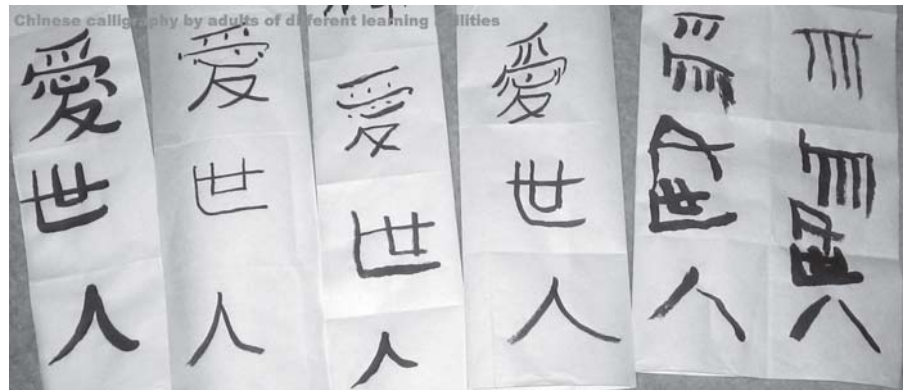 Chinese calligraphy by adults of different learning abilities
愛世人
愛世人
愛世人
愛世人
人